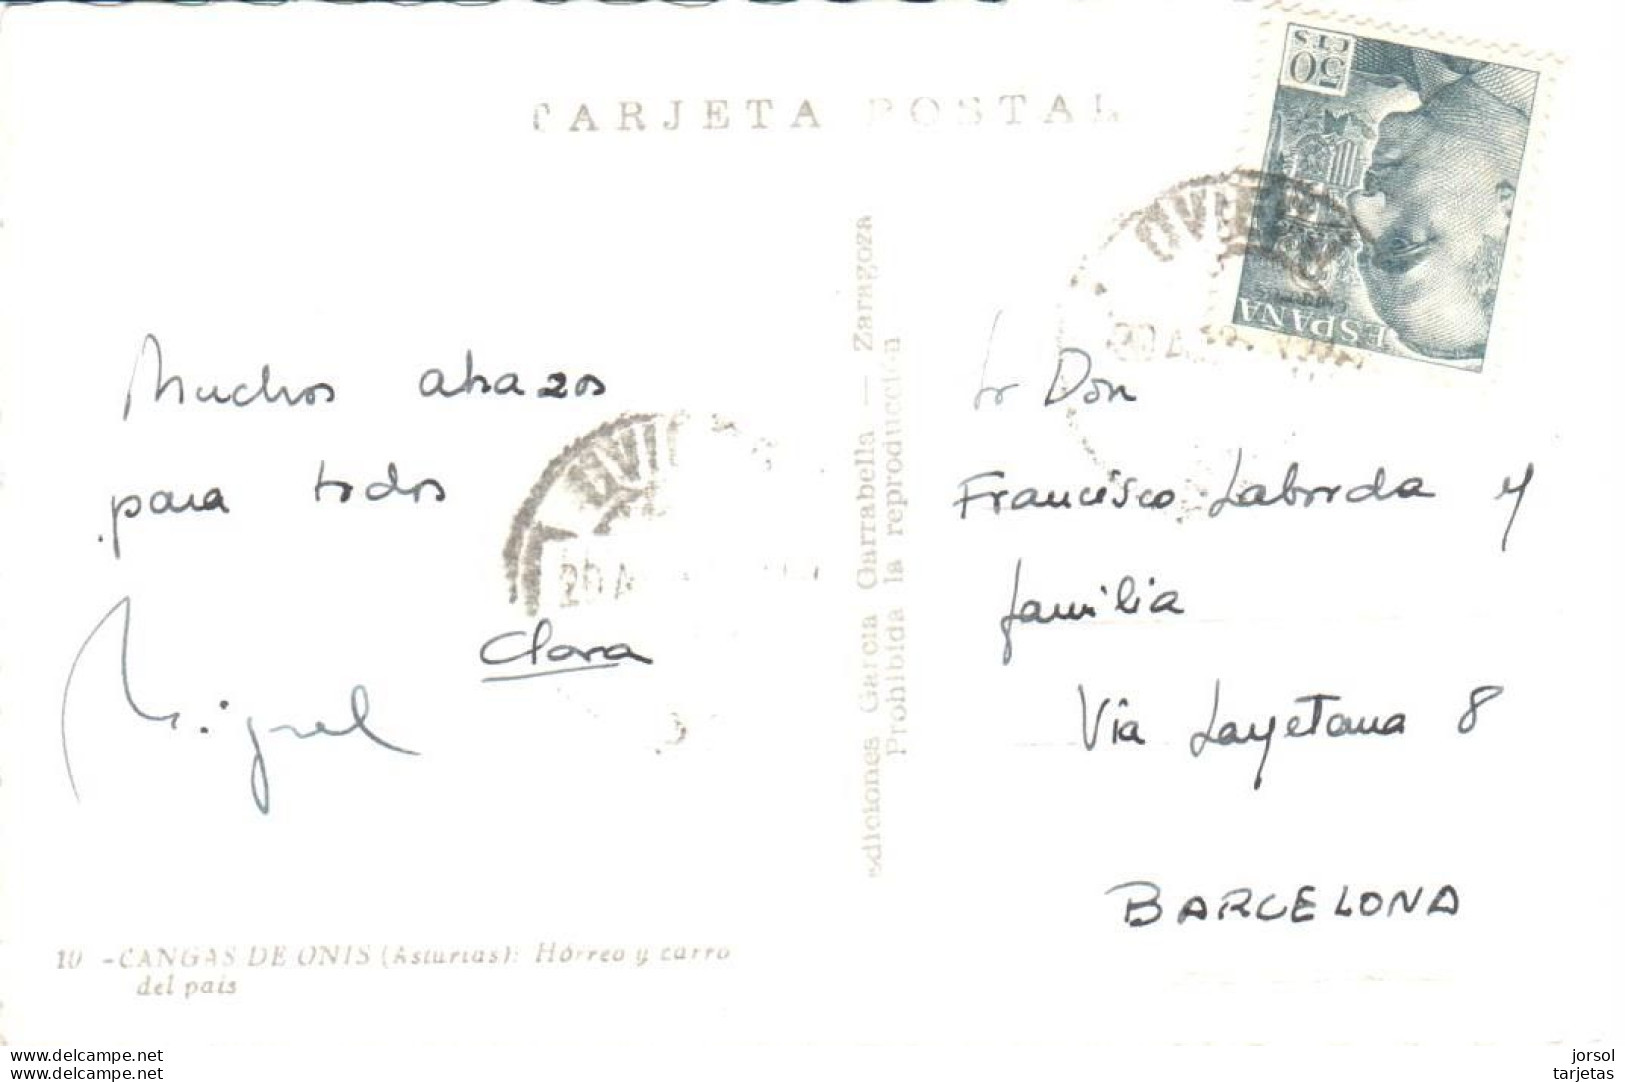 TARJETA POSTAL
50
CTS
ESPAÑA
OVIE
20 A
Muchos abrazos
para todos
OVIE
20 A
Clara
Miguel
Ediciones García Garrabella — Zaragoza
Prohibida la reproducción
Sr Don
Francisco Laborda y
familia
Vía Layetana 8
BARCELONA
10 -CANGAS DE ONIS (Asturias): Hórreo y carro
del país
www.delcampe.com
www.delcampe.net
jorsol
tarjetas